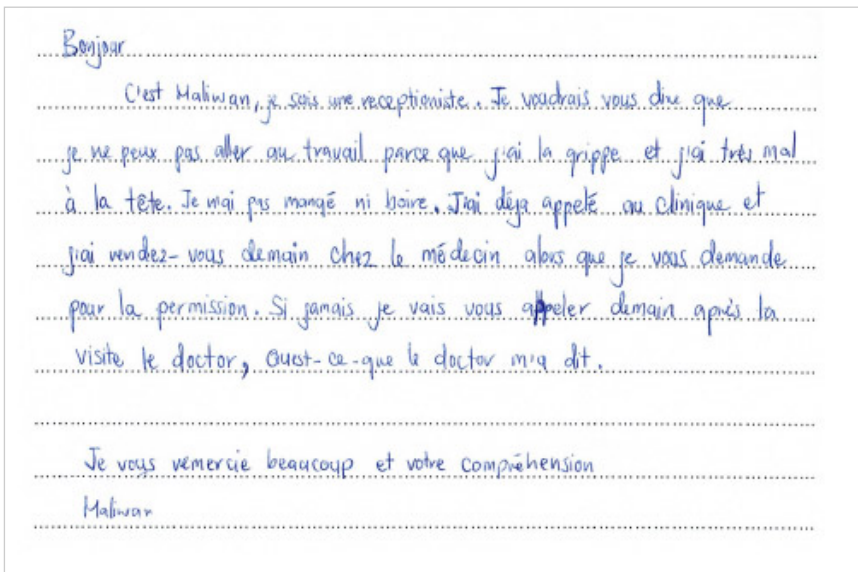 Bonjour
C'est Maliwan, je suis une receptioniste. Je voudrais vous dire que
je ne peux pas aller au travail parce que j'ai la grippe et j'ai très mal
à la tête. Je n'ai pas mangé ni boire. J'ai déja appelé au clinique et
j'ai rendez-vous demain chez le médecin alors que je vous demande
pour la permission. Si jamais je vais vous appeler demain après la
visite le doctor, Quest-ce-que le doctor m'a dit.
Je vous remercie beaucoup et votre compréhension
Maliwan